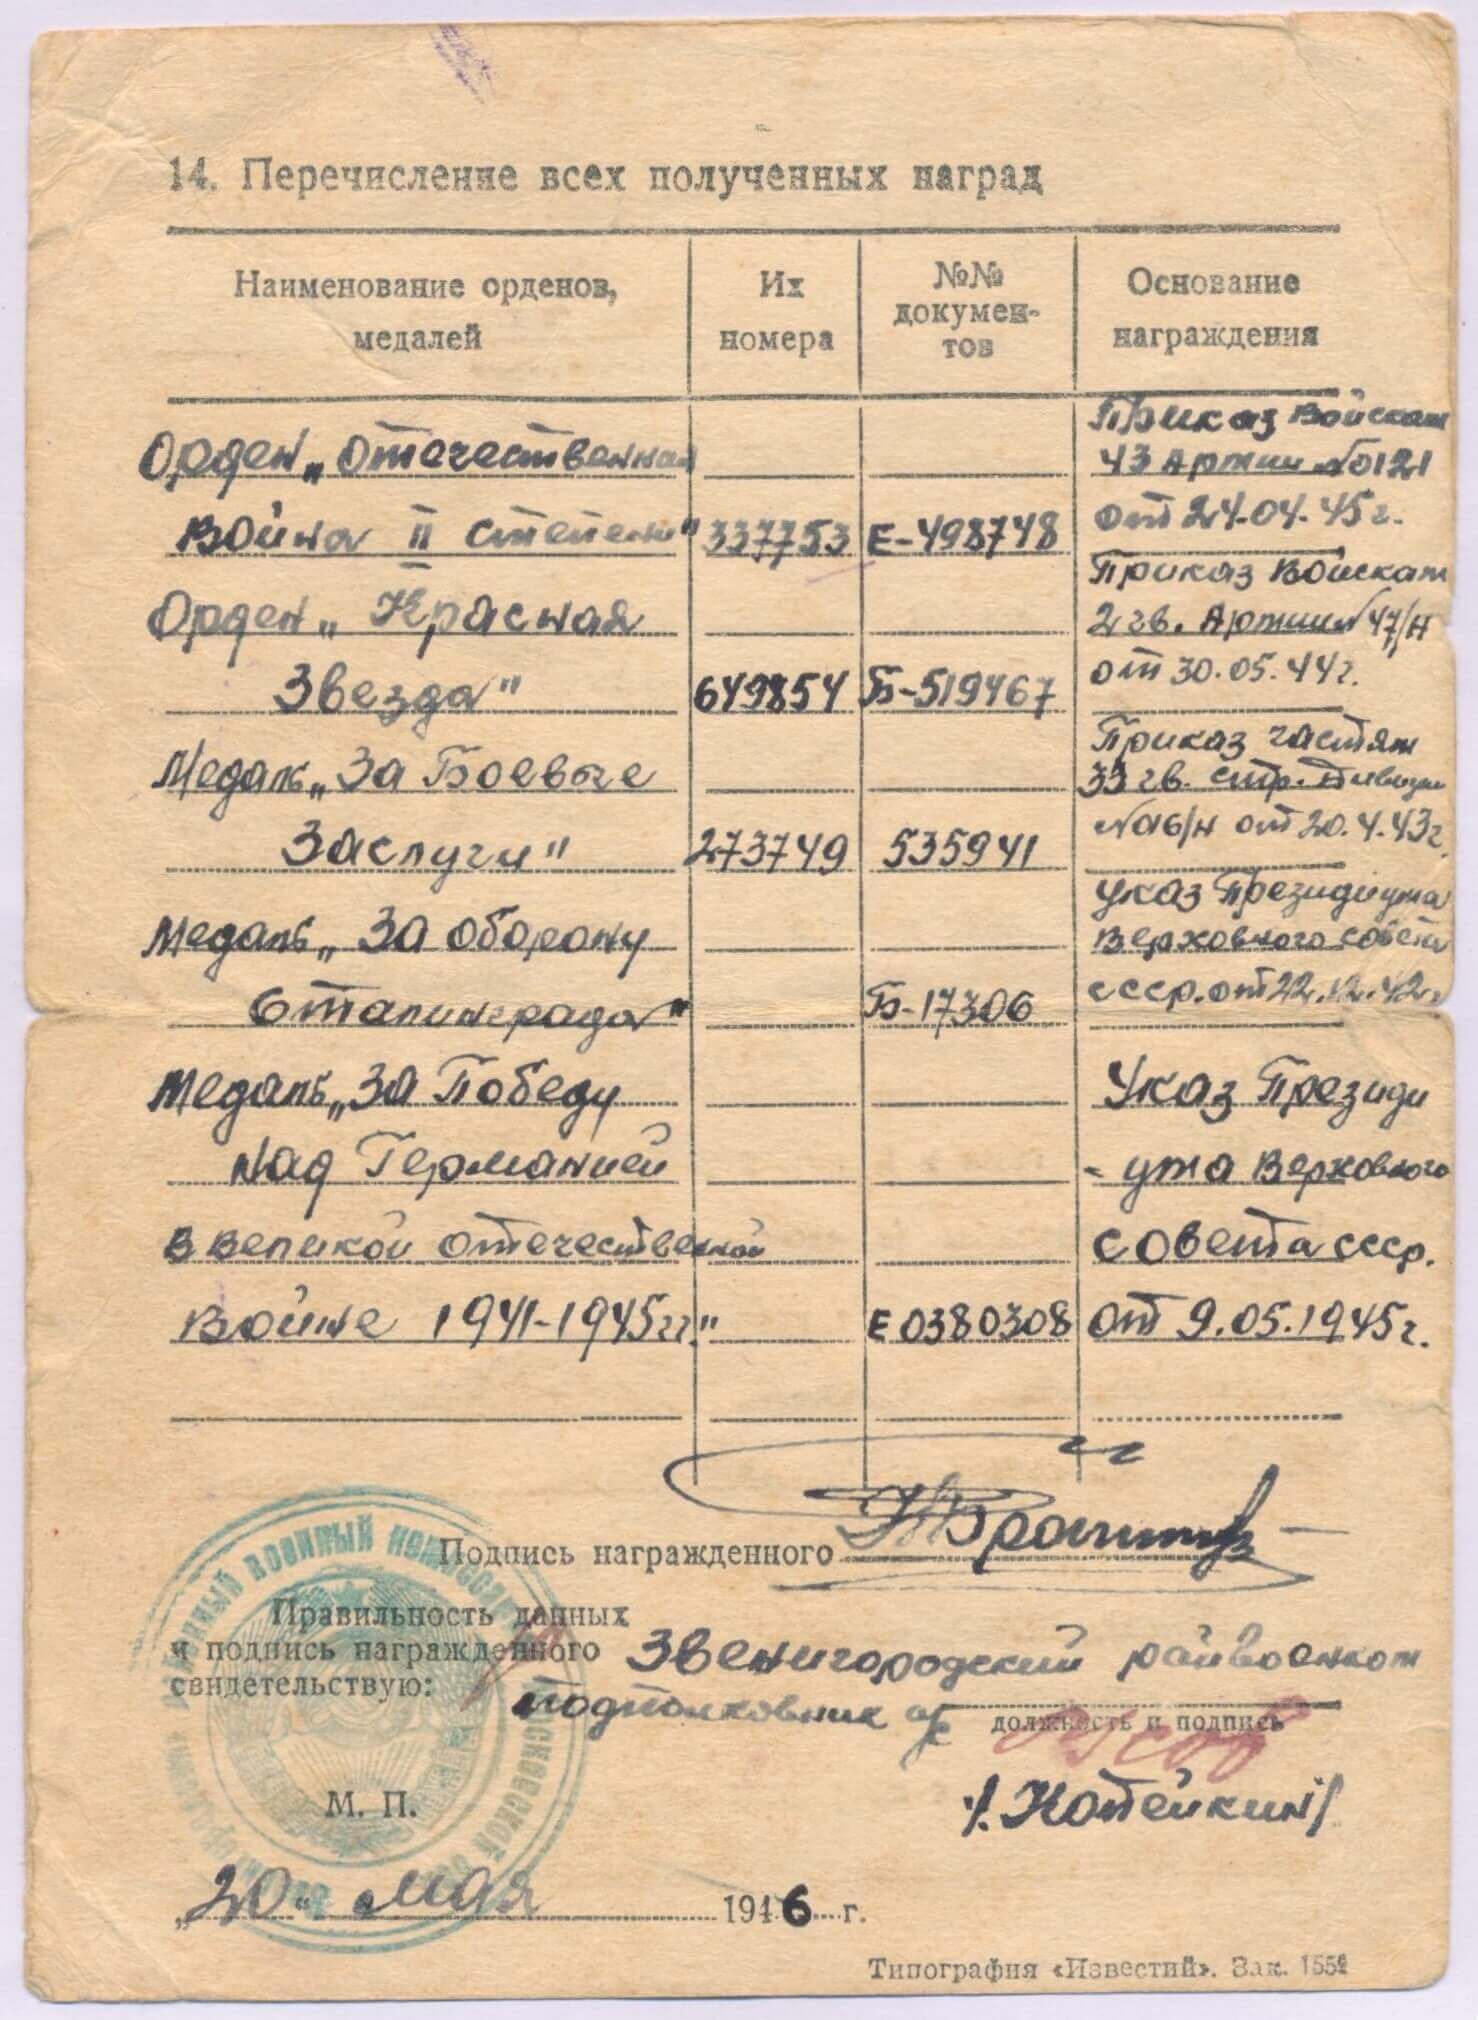 14. Перечисление всех полученных наград
Наименование орденов,
медалей
Их
номера
№№
докумен-
тов
Основание
награждения
Орден „Отечественная
Война II степени"
337753
Е-498748
Приказ Войскам
43 Армии №0121
от 24.04.45г.
Орден „Красная
Звезда"
649854
Б-519467
Приказ Войскам
2 гв. Армии №47/н
от 30.05.44г.
Медаль „За Боевые
Заслуги"
273749
535941
Приказ частям
33 гв. стр. Дивизии
от 20.4.43г.
Медаль „За оборону
Сталинграда"
Б-17306
Указ Президиума
Верховного Совета
СССР. от 22.12.42г
Медаль „За Победу
над Германией
в великой отечественной
войне 1941-1945гг."
Е 0380308
Указ Президи
-ума Верховного
Совета СССР.
от 9.05.1945г.
Подпись награжденного
Правильность данных
и подпись награжденного
свидетельствую:
Звенигородский райвоенком
подполковник
должность и подпись
/Котейкин/
М. П.
„20" мая 1946 г.
Типография «Известий». Зак.